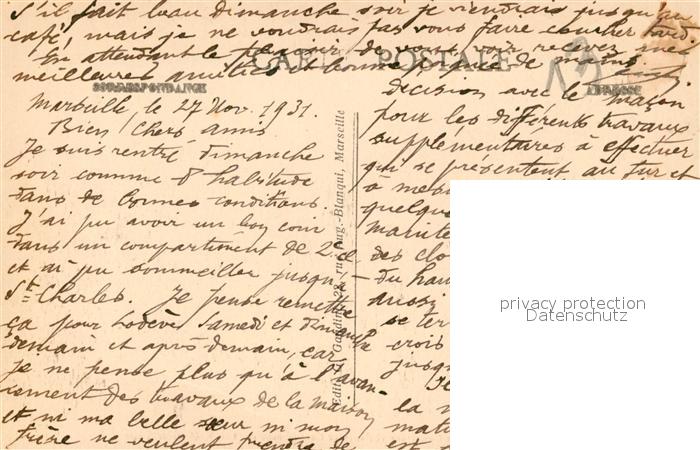 S'il fait beau Dimanche soir je viendrais jusqu'au
café, mais je ne voudrais pas vous faire coucher tard.
En attendant le plaisir de vous voir recevez mes
meilleures amitiés et bonne poignée de mains
CARTE POSTALE
CORRESPONDANCE
ADRESSE
Marseille, le 27 Nov. 1931.
Bien Chers amis
Je suis rentré dimanche
soir comme d'habitude
dans de bonnes conditions.
J'ai pu avoir un bon coin
dans un compartiment de 2e cl.
et ai pu sommeiller jusqu'à
St Charles. Je pense remettre
ça pour Lodève Samedi et dimanche
demain et après demain, car
je ne pense plus qu'à l'avan-
cement des travaux de la maison
et ni ma belle sœur ni mon
frère ne veulent prendre de
Edit. Gaudin, 28, rue Aug.-Blanqui, Marseille
décision avec le maçon
pour les différents travaux
supplémentaires à effectuer
qui se présentent au fur et
à mes
quelque
des clo
du hau
aussi
se ter
crois
jusqu
la
mat
est
privacy protection
Datenschutz